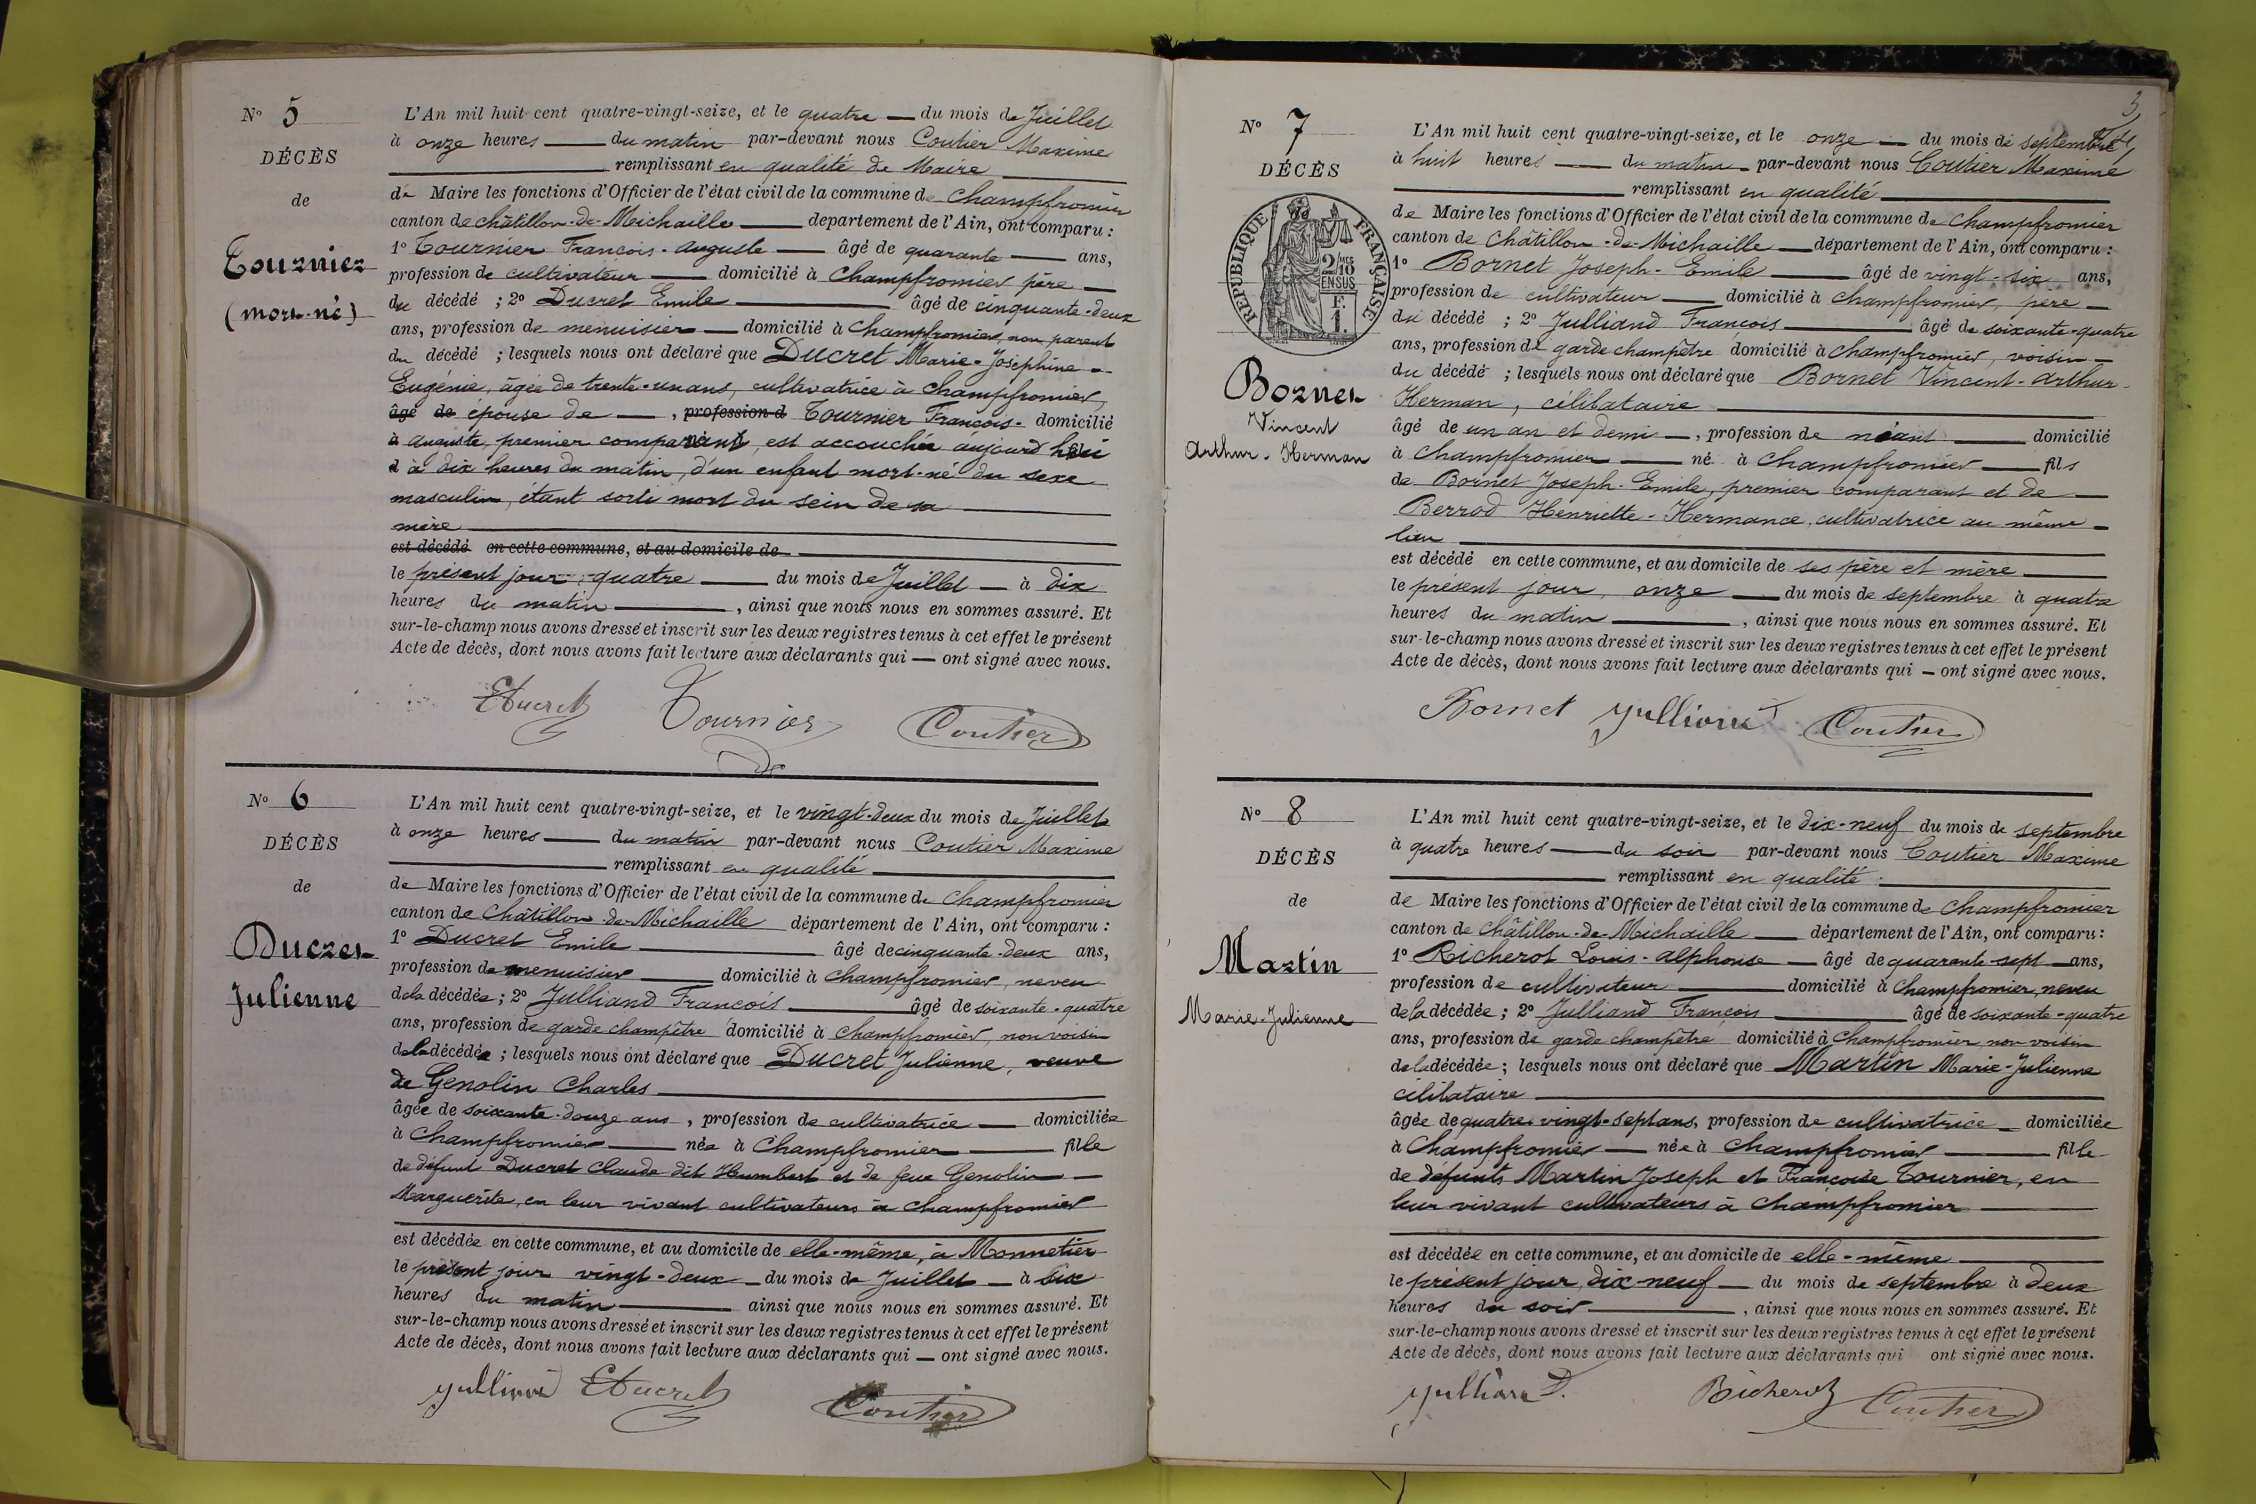 N° 5
DÉCÈS
de
Tournier
(mort-né)
L'An mil huit cent quatre-vingt-seize, et le quatre — du mois de Juillet
à onze heures — du matin par-devant nous Coutier Maxime
remplissant en qualité de Maire
de Maire les fonctions d'Officier de l'état civil de la commune de Champfromier
canton de Châtillon-de-Michaille — département de l'Ain, ont comparu :
1° Tournier François-Auguste — âgé de quarante — ans,
profession de cultivateur — domicilié à Champfromier père —
du décédé ; 2° Ducret Emile — âgé de cinquante-deux
ans, profession de menuisier — domicilié à Champfromier, non parent
du décédé ; lesquels nous ont déclaré que Ducret Marie-Joséphine —
Eugénie, âgée de trente-un ans, cultivatrice à Champfromier,
âgé de épouse de —, profession d Tournier François- domicilié
à Auguste, premier comparant, est accouchée aujourd'hui
à dix heures du matin, d'un enfant mort-né du sexe
masculin, étant sorti mort du sein de sa
mère
est décédé en cette commune, et au domicile de
le présent jour, quatre — du mois de Juillet — à dix
heures du matin —, ainsi que nous nous en sommes assuré. Et
sur-le-champ nous avons dressé et inscrit sur les deux registres tenus à cet effet le présent
Acte de décès, dont nous avons fait lecture aux déclarants qui — ont signé avec nous.
EDucret Tournier Coutier
N° 6
DÉCÈS
de
Ducret
Julienne
L'An mil huit cent quatre-vingt-seize, et le vingt-deux du mois de Juillet
à onze heures — du matin par-devant nous Coutier Maxime
remplissant en qualité
de Maire les fonctions d'Officier de l'état civil de la commune de Champfromier
canton de Châtillon-de-Michaille département de l'Ain, ont comparu :
1° Ducret Emile — âgé de cinquante-deux ans,
profession de menuisier — domicilié à Champfromier, neveu
de la décédée ; 2° Julliand François — âgé de soixante-quatre
ans, profession de garde champêtre domicilié à Champfromier, non voisin
de la décédée ; lesquels nous ont déclaré que Ducret Julienne, veuve
de Genolin Charles
âgée de soixante-douze ans, profession de cultivatrice — domiciliée
à Champfromier — née à Champfromier — fille
de défunt Ducret Claude dit Humbert et de feue Genolin —
Marguerite, en leur vivant cultivateurs à Champfromier
est décédée en cette commune, et au domicile de elle-même, à Monnetier
le présent jour vingt-deux — du mois de Juillet — à six
heures du matin — ainsi que nous nous en sommes assuré. Et
sur-le-champ nous avons dressé et inscrit sur les deux registres tenus à cet effet le présent
Acte de décès, dont nous avons fait lecture aux déclarants qui — ont signé avec nous.
Julliand EDucret Coutier
3
N° 7
DÉCÈS
RÉPUBLIQUE FRANÇAISE
2/10 EN SUS
F. 1.
Bornet
Vincent
Arthur-Herman
L'An mil huit cent quatre-vingt-seize, et le onze — du mois de septembre
à huit heures — du matin — par-devant nous Coutier Maxime
remplissant en qualité
de Maire les fonctions d'Officier de l'état civil de la commune de Champfromier
canton de Châtillon-de-Michaille — département de l'Ain, ont comparu :
1° Bornet Joseph-Emile — âgé de vingt-six ans,
profession de cultivateur — domicilié à Champfromier, père —
du décédé ; 2° Julliand François — âgé de soixante-quatre
ans, profession de garde champêtre domicilié à Champfromier, voisin —
du décédé ; lesquels nous ont déclaré que Bornet Vincent-Arthur-
Herman, célibataire
âgé de un an et demi —, profession de néant — domicilié
à Champfromier — né à Champfromier — fils
de Bornet Joseph-Emile, premier comparant et de —
Berrod Henriette-Hermance, cultivatrice au même —
lieu
est décédé en cette commune, et au domicile de ses père et mère
le présent jour, onze — du mois de septembre à quatre
heures du matin —, ainsi que nous nous en sommes assuré. Et
sur-le-champ nous avons dressé et inscrit sur les deux registres tenus à cet effet le présent
Acte de décès, dont nous avons fait lecture aux déclarants qui — ont signé avec nous.
Bornet Julliand Coutier
N° 8
DÉCÈS
de
Martin
Marie-Julienne
L'An mil huit cent quatre-vingt-seize, et le dix-neuf du mois de septembre
à quatre heures — du soir par-devant nous Coutier Maxime
remplissant en qualité
de Maire les fonctions d'Officier de l'état civil de la commune de Champfromier
canton de Châtillon-de-Michaille — département de l'Ain, ont comparu :
1° Richerot Louis-Alphonse — âgé de quarante-sept ans,
profession de cultivateur — domicilié à Champfromier, neveu
de la décédée ; 2° Julliand François — âgé de soixante-quatre
ans, profession de garde champêtre domicilié à Champfromier non voisin
de la décédée ; lesquels nous ont déclaré que Martin Marie-Julienne
célibataire
âgée de quatre-vingt-sept ans, profession de cultivatrice — domiciliée
à Champfromier — née à Champfromier — fille
de défunts Martin Joseph et Françoise Tournier, en
leur vivant cultivateurs à Champfromier
est décédée en cette commune, et au domicile de elle-même
le présent jour, dix-neuf — du mois de septembre à deux
heures du soir —, ainsi que nous nous en sommes assuré. Et
sur-le-champ nous avons dressé et inscrit sur les deux registres tenus à cet effet le présent
Acte de décès, dont nous avons fait lecture aux déclarants qui ont signé avec nous.
Julliand. Richerot Coutier